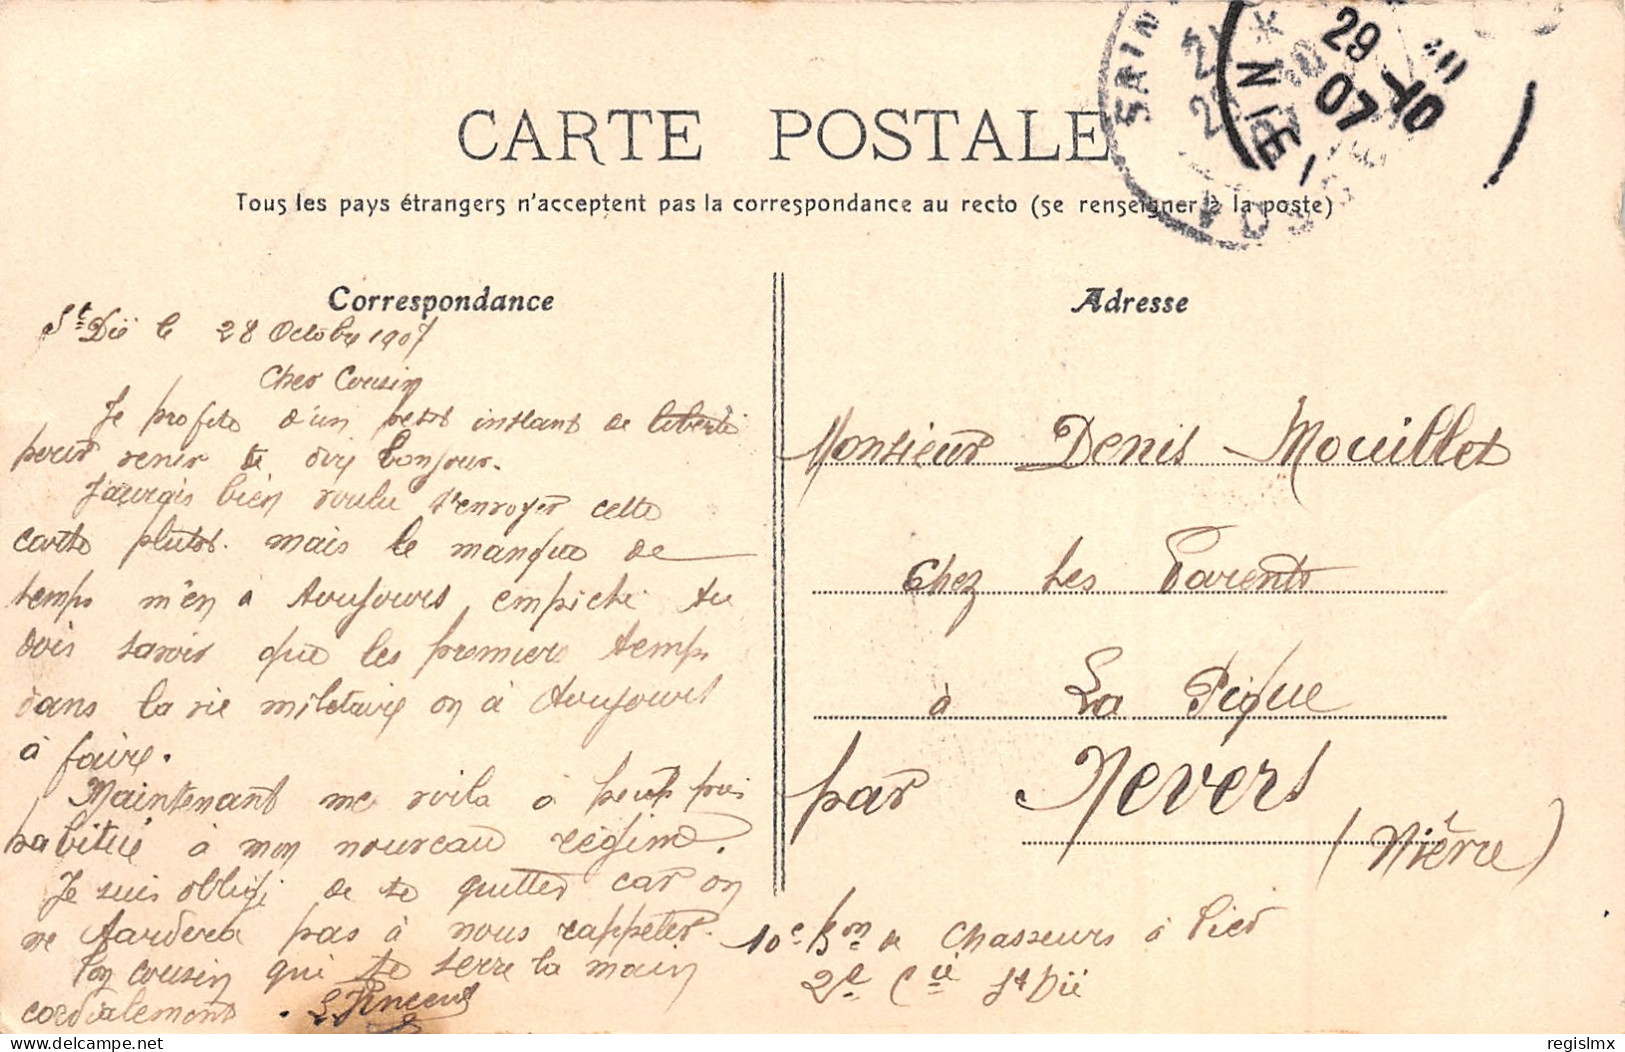 CARTE POSTALE
Tous les pays étrangers n'acceptent pas la correspondance au recto (se renseigner à la poste)
SAIN
VOSGES
NIE
29 -10
07
Correspondance
St Dié le 28 Octobre 1907
Cher Cousin
Je profite d'un petit instant de liberté
pour venir te dire bonjour.
J'aurais bien voulu t'envoyer cette
carte plutôt. mais le manque de
temps m'en a toujours empêché tu
dois savoir que les premiers temps
dans la vie militaire on à toujours
à faire.
Maintenant me voila à peu près
habitué à mon nouveau régime.
Je suis obligé de te quitter car on
ne tardera pas à nous rappeler.
Ton cousin qui te serre la main
cordialement. L Vincent
Adresse
Monsieur Denis Mouillet
Chez ses Parents
à La Pique
par Nevers
(Nièvre)
10e Bon de Chasseurs à Pied
2e Cie St Dié
Delcampe.net
regislmx